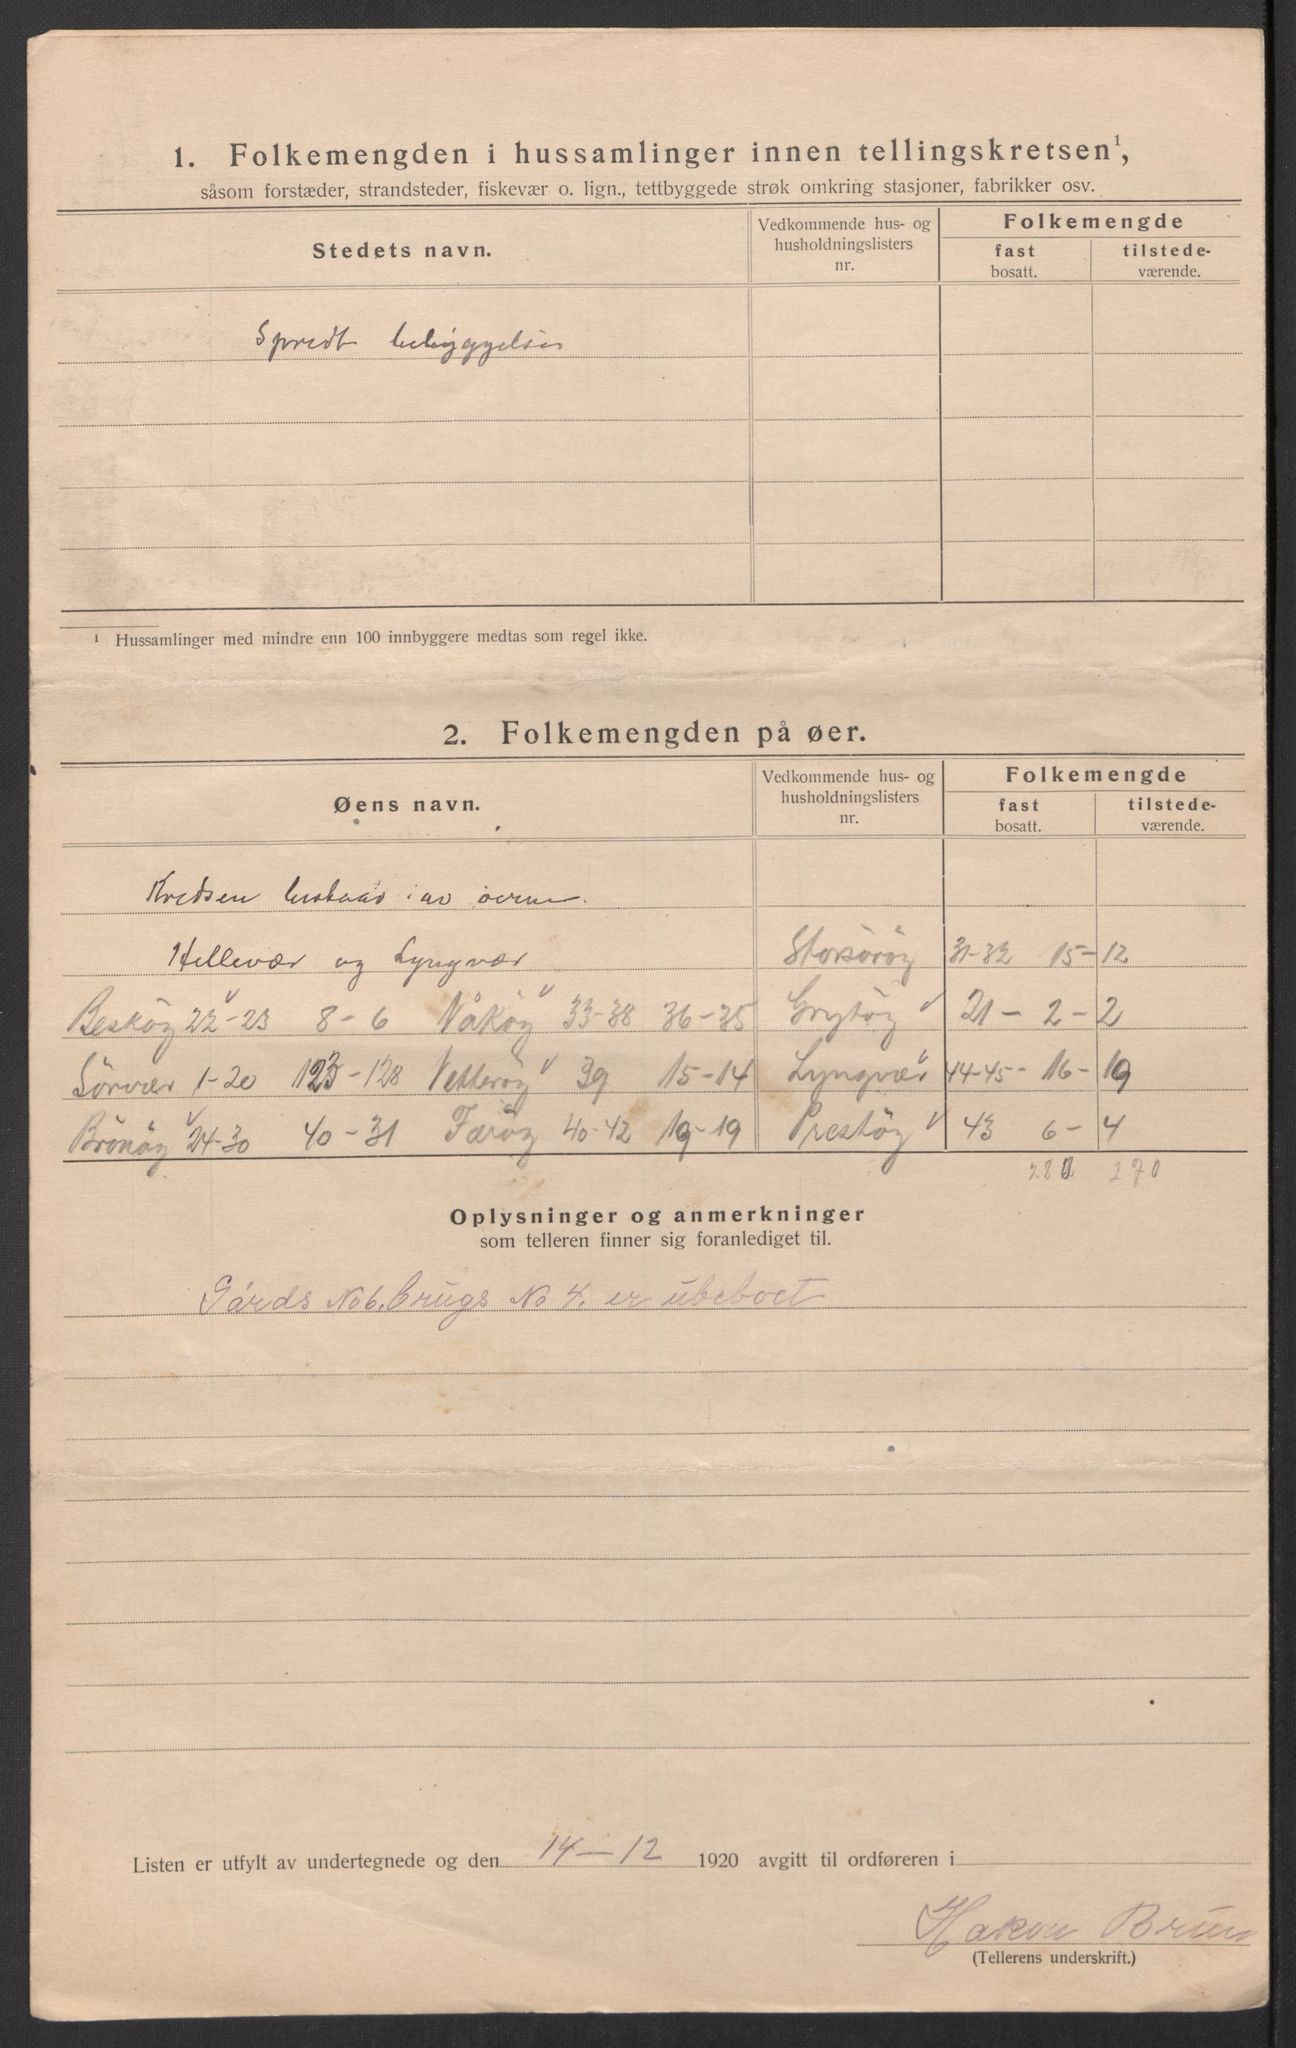 1. Folkemengden i hussamlinger innen tellingskretsen¹,
såsom forstæder, strandsteder, fiskevær o. lign., tettbyggede strøk omkring stasjoner, fabrikker osv.
Stedets navn.
Vedkommende hus- og husholdningslisters nr.
Folkemengde
fast bosatt.
tilstede-værende.
Spredt bebyggelse
¹ Hussamlinger med mindre enn 100 innbyggere medtas som regel ikke.
2. Folkemengden på øer.
Øens navn.
Vedkommende hus- og husholdningslisters nr.
Folkemengde
fast bosatt.
tilstede-værende.
Kredsen bestaar av øerne.
Hellevær og Lyngvær Storsöröy 31-32 15-12
Besköy 22-23 8-6 Våköy 33-38 36-35 Grytöy 21-2-2
Sörvær 1-20 123-128 Vetteröy 39 15-14 Lyngvær 44-45-16-19
Brönöy 24-30 40-31 Færöy 40-42 19-19 Prestöy 43 6-4
280 270
Oplysninger og anmerkninger
som telleren finner sig foranlediget til.
Gårds No 6. brugs No 4. er ubeboet
Listen er utfylt av undertegnede og den 14-12 1920 avgitt til ordføreren i
Hakon Brun
(Tellerens underskrift.)